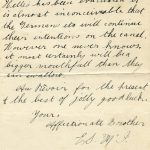 Hollis has been evacuated it
is almost inconceivable that
the Germans etc will continue
their intentions on the canal
However one never knows,
it most certainly will be a
bigger mouthfull than they
can swallow.
Au Revoir for the present
& the best of jolly good luck.
Yours,
Affectionate Brother